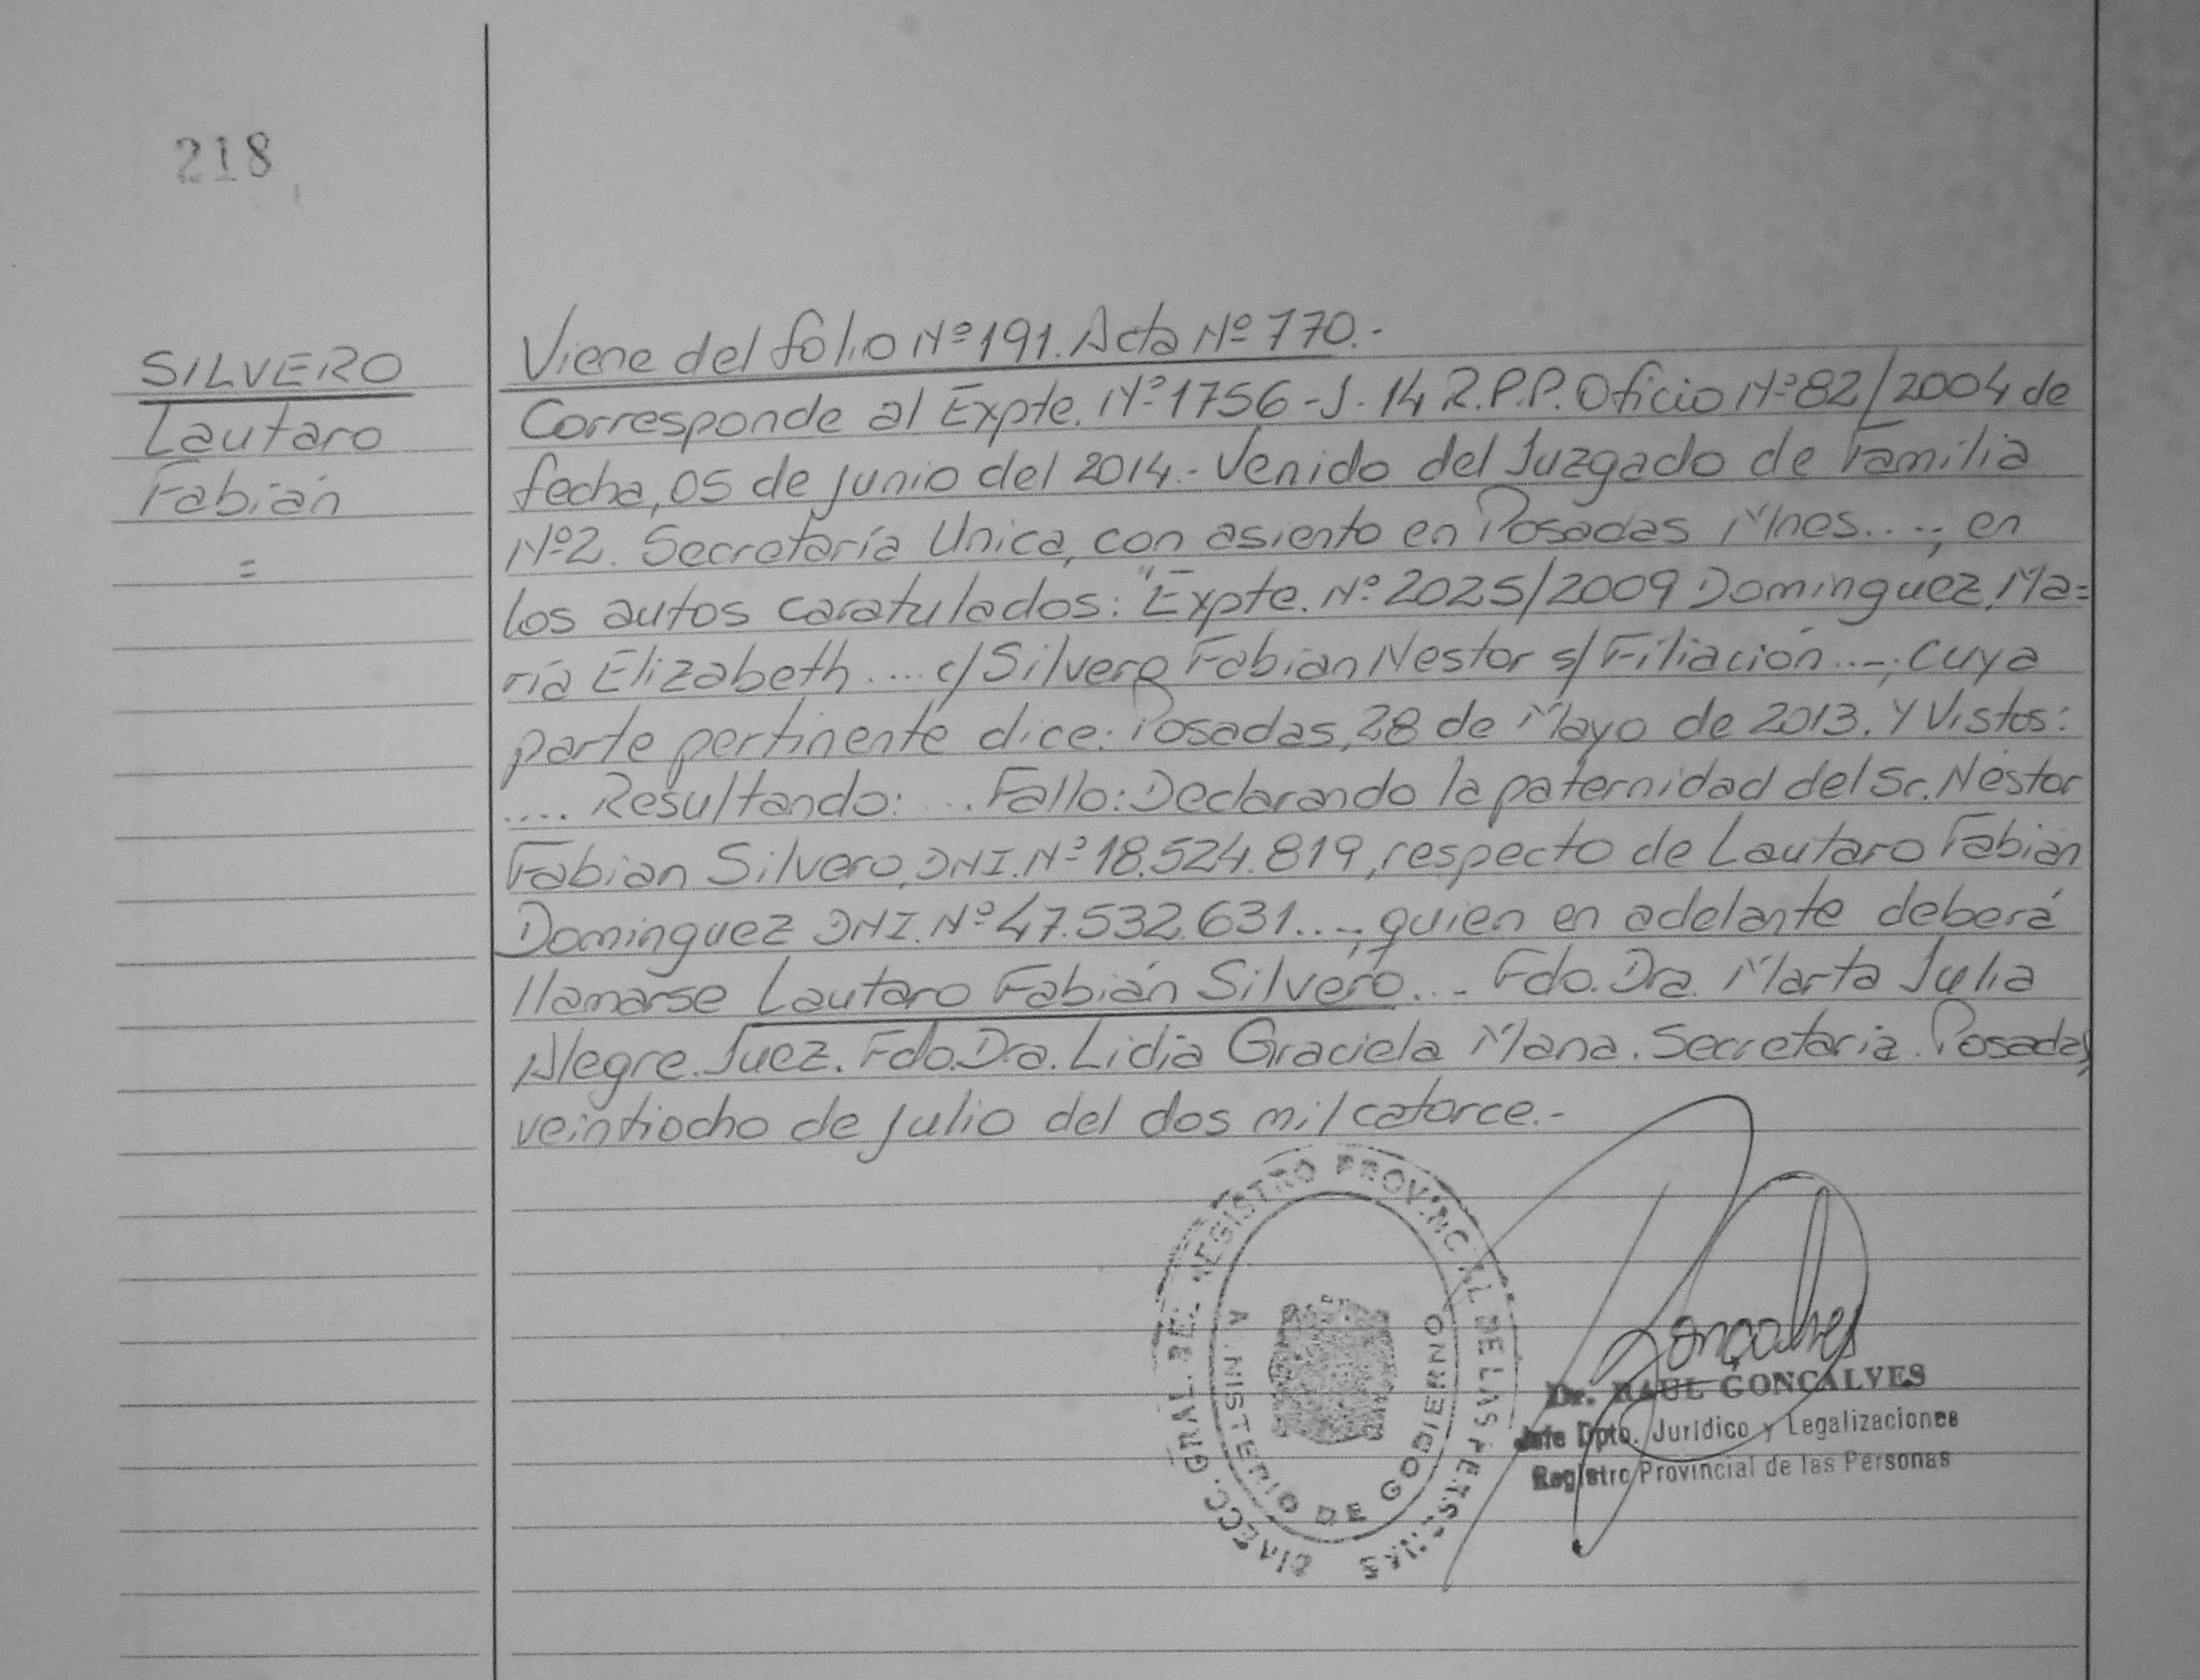 218
SILVERO
Lautaro
Fabián
=
Viene del folio Nº 191. Acta Nº 770.-
Corresponde al Expte. Nº 1756-J-14 R.P.P. Oficio Nº 82/2004 de
fecha, 05 de junio del 2014.- Venido del Juzgado de Familia
Nº2. Secretaría Unica, con asiento en Posadas Mnes....; en
los autos caratulados: "Expte. Nº 2025/2009 Dominguez, Ma=
ría Elizabeth .... c/ Silvero Fabian Nestor s/ Filiación ...; cuya
parte pertinente dice: Posadas, 28 de Mayo de 2013. Y Vistos:
.... Resultando: ... Fallo: Declarando la paternidad del Sr. Néstor
Fabian Silvero, DNI. Nº 18.524.819, respecto de Lautaro Fabián
Dominguez DNI. Nº 47.532.631...., quien en adelante deberá
llamarse Lautaro Fabián Silvero... Fdo. Dra. Marta Julia
Alegre. Juez. Fdo. Dra. Lidia Graciela Mana. Secretaria. Posadas,
veintiocho de julio del dos mil catorce.-
DIRECC. GRAL. DEL REGISTRO PROVINCIAL DE LAS PERSONAS
MINISTERIO DE GOBIERNO
Goncalves
Dr. RAUL GONCALVES
Jefe Dpto. Jurídico y Legalizaciones
Registro Provincial de las Personas